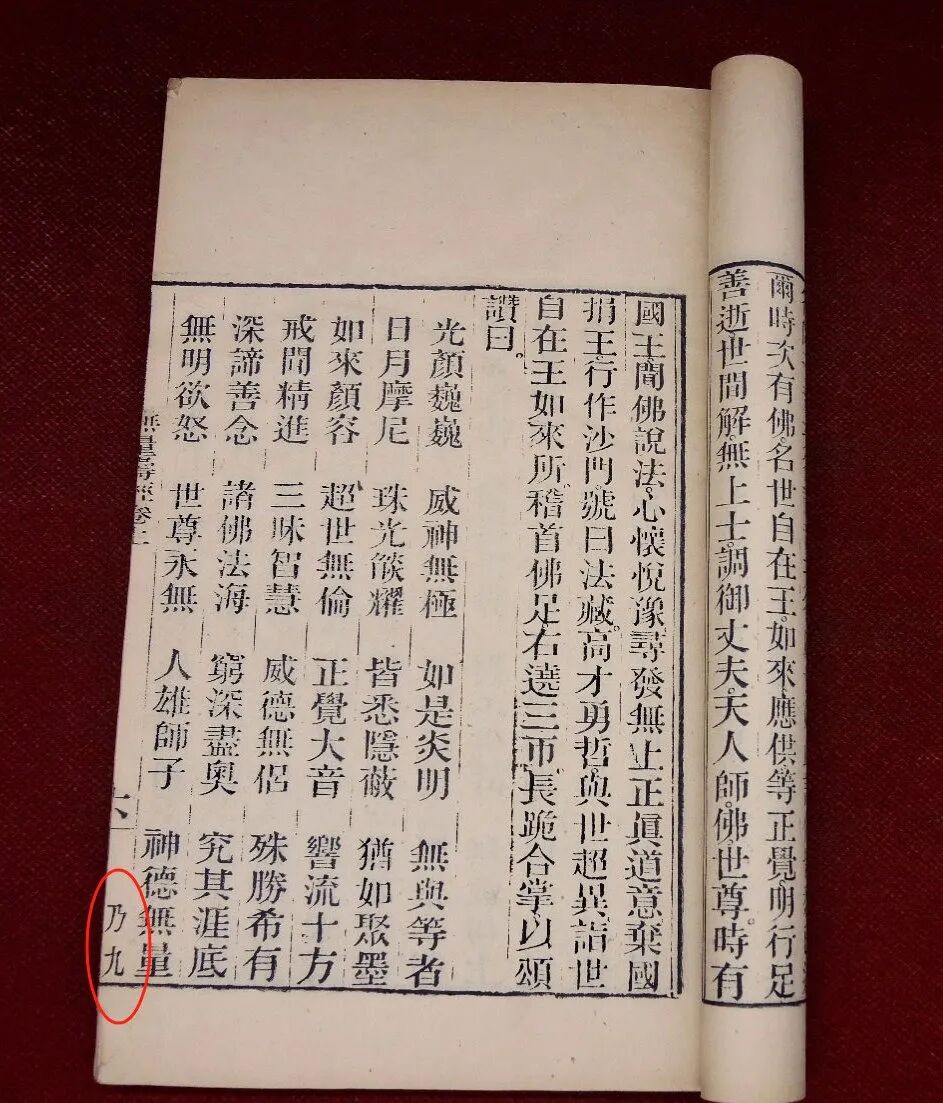 爾時次有佛名世自在王如來應供等正覺明行足
善逝世間解無上士調御丈夫天人師佛世尊時有
國王聞佛說法心懷悅豫尋發無上正眞道意棄國
捐王行作沙門號曰法藏高才勇哲與世超異詣世
自在王如來所稽首佛足右遶三帀長跪合掌以頌
讚曰
光顏巍巍 威神無極 如是炎明 無與等者
日月摩尼 珠光燄耀 皆悉隱蔽 猶如聚墨
如來顏容 超世無倫 正覺大音 響流十方
戒聞精進 三昧智慧 威德無侶 殊勝希有
深諦善念 諸佛法海 窮深盡奧 究其涯底
無明欲怒 世尊永無 人雄師子 神德無量
無量壽經卷上 六 乃九